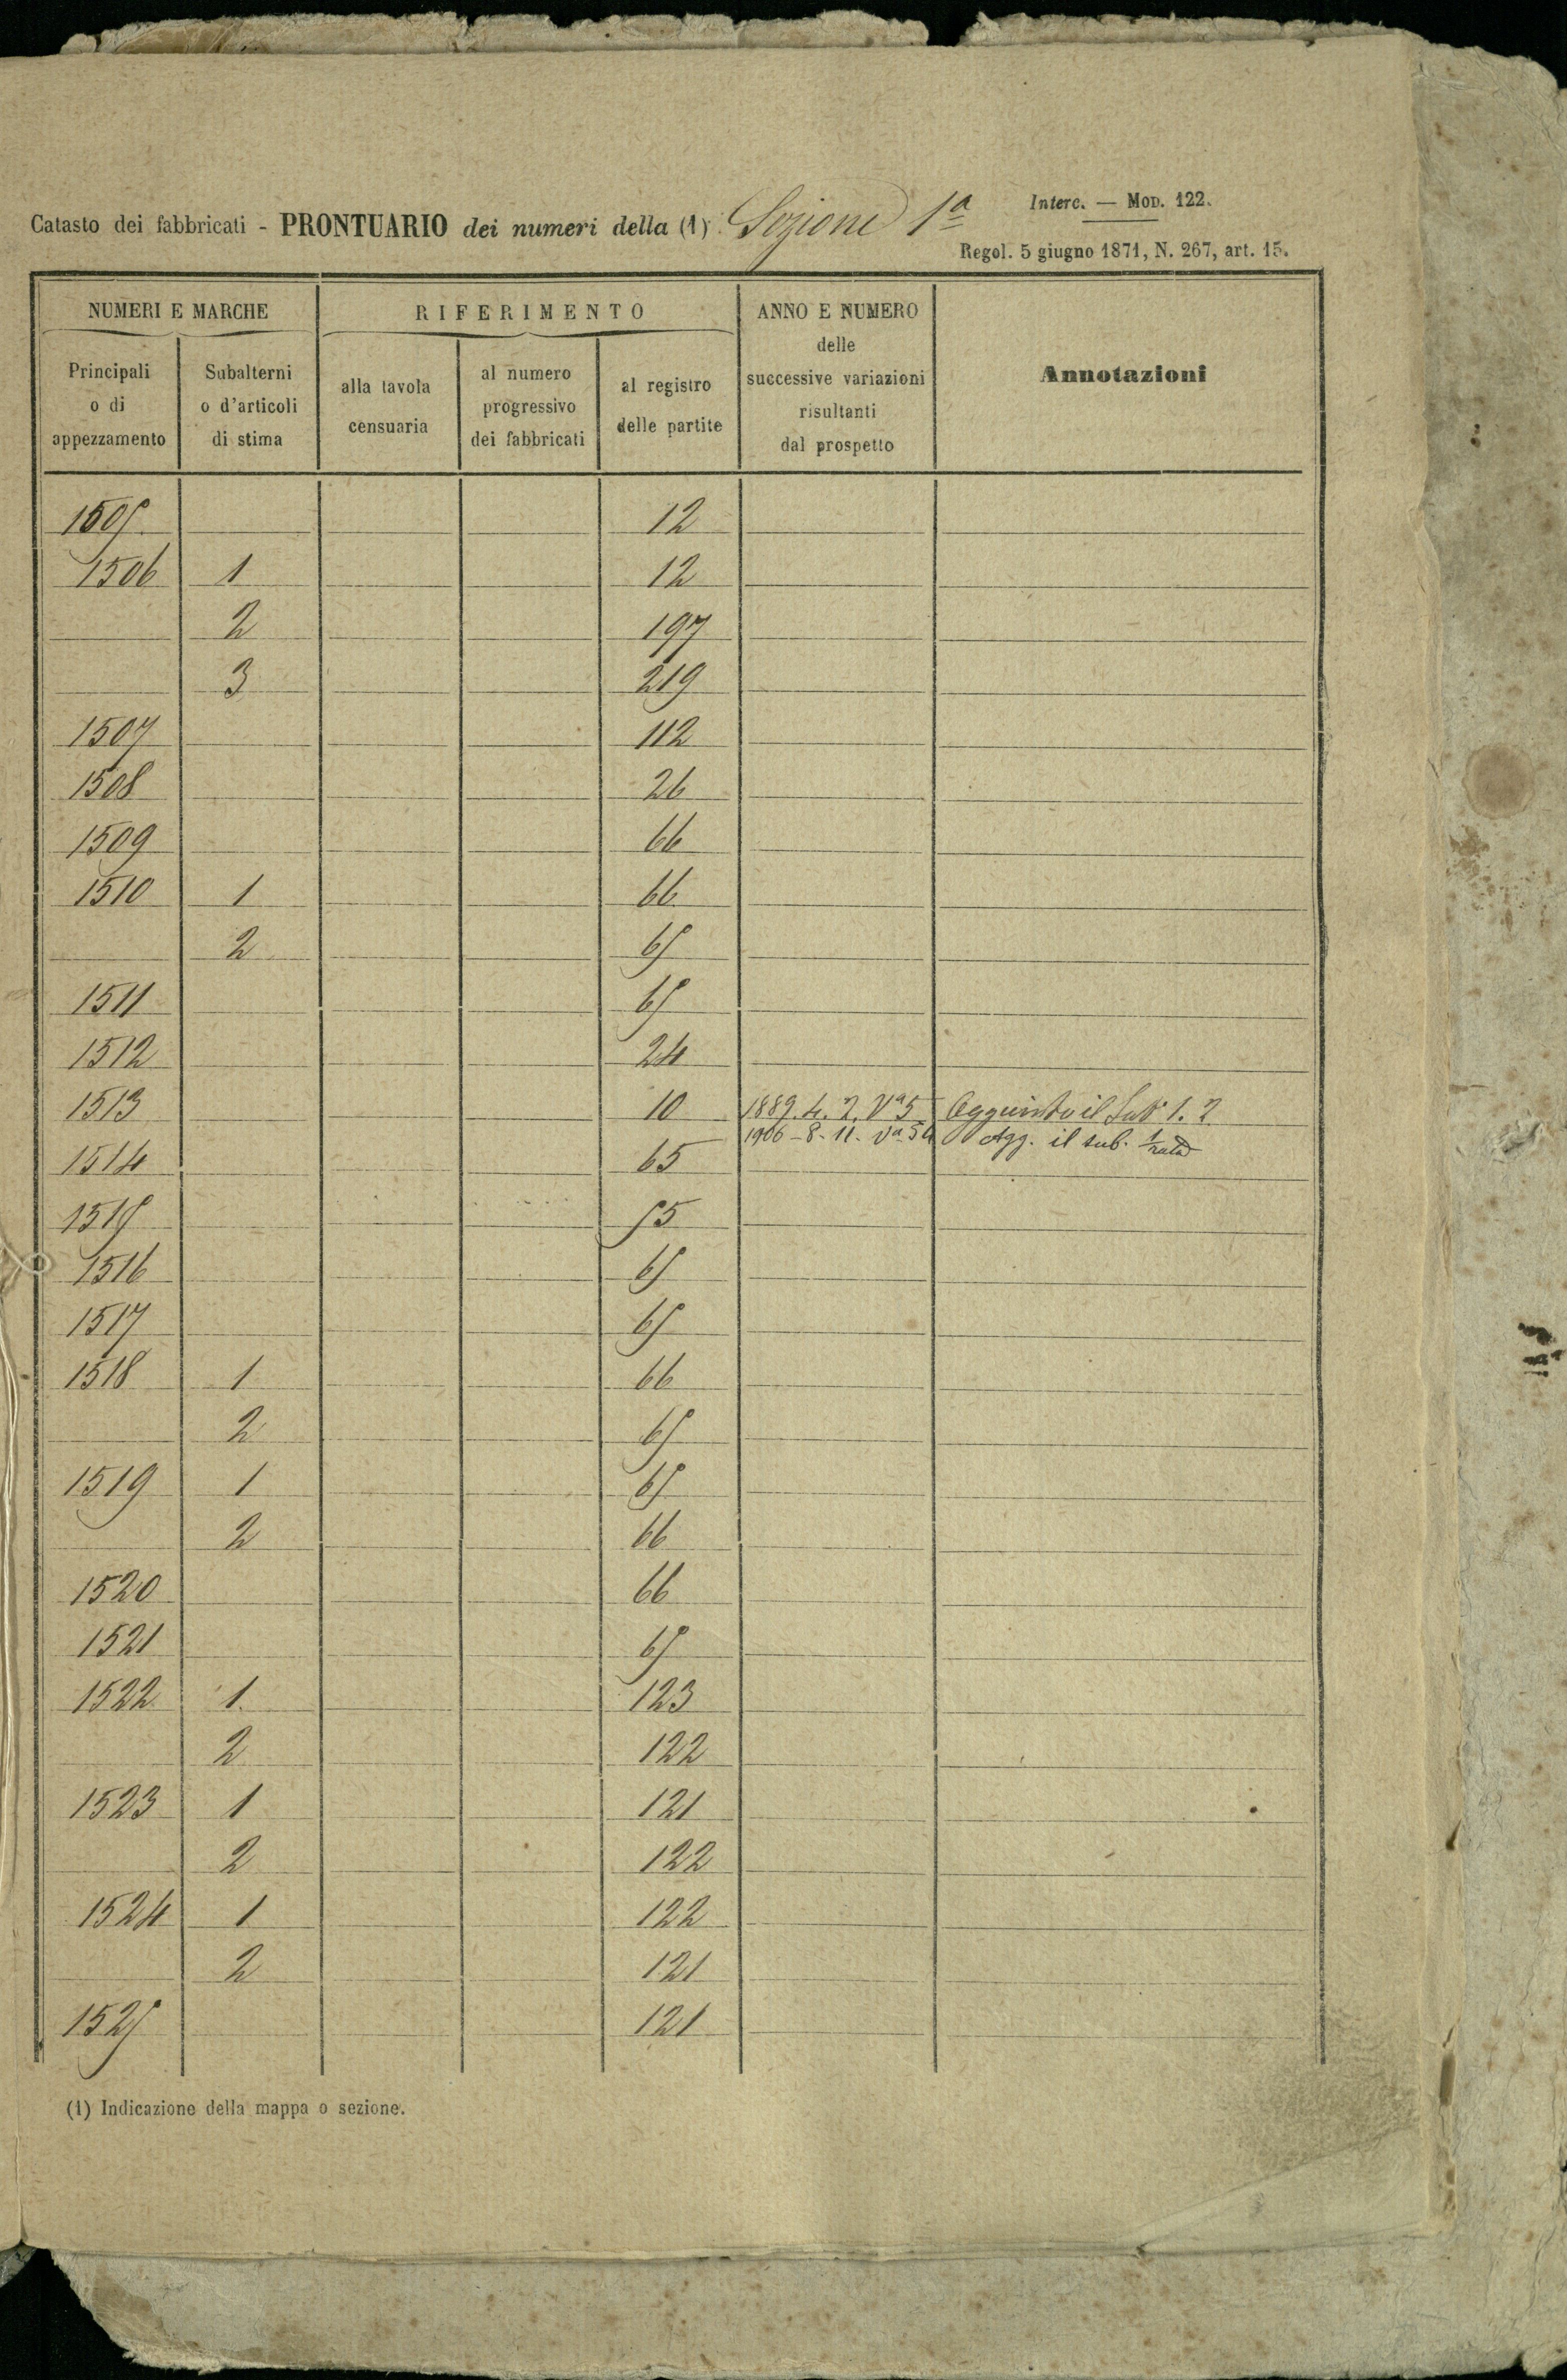 Interc. — Mod. 122.
Catasto dei fabbricati - PRONTUARIO dei numeri della (1) Sezione 1ª
Regol. 5 giugno 1871, N. 267, art. 15.
NUMERI E MARCHE RIFERIMENTO ANNO E NUMERO delle successive variazioni risultanti dal prospetto Annotazioni
Principali o di appezzamento Subalterni o d'articoli di stima alla tavola censuaria al numero progressivo dei fabbricati al registro delle partite
1505 12
1506 1 12
2 197
3 219
1507 112
1508 26
1509 66
1510 1 66
2 65
1511 65
1512 24
1513 10 1889. 4. 2. Vª 5 Aggiunto il Sub 1. 2
1906 - 8. 11. Vª 54 Agg. il sub. 1
1514 65
1515 55
1516 65
1517 65
1518 1 66
2 65
1519 1 65
2 66
1520 66
1521 65
1522 1 123
2 122
1523 1 121
2 122
1524 1 122
2 121
1525 121
(1) Indicazione della mappa o sezione.